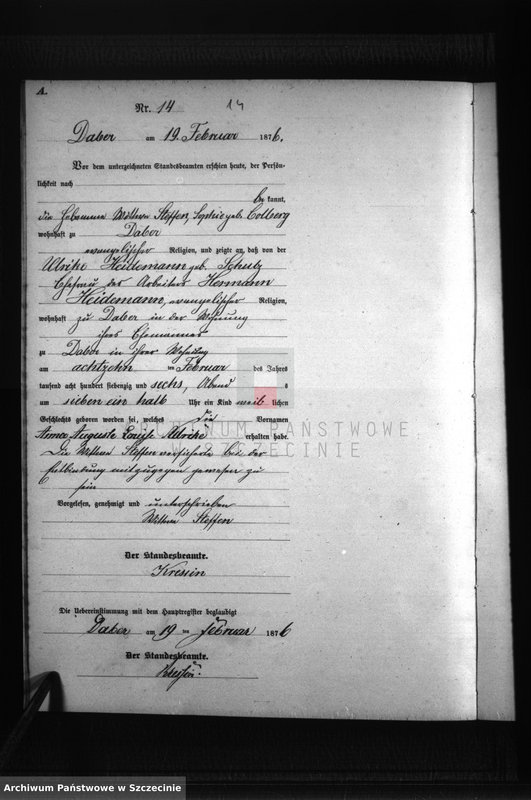 A.
Nr. 14 14
Daber am 19. Februar 1876.
Vor dem unterzeichneten Standesbeamten erschien heute, der Persön-
lichkeit nach
be kannt,
die Hebamme Wittwe Steffen, Sophie geb. Colberg
wohnhaft zu Daber
evangelischer Religion, und zeigte an, daß von der
Ulrike Heidemann geb. Schulz
Ehefrau des Arbeiters Hermann
Heidemann, evangelischer Religion,
wohnhaft zu Daber in der Wohnung
ihres Ehemannes
zu Daber in ihrer Wohnung
am achtzehn ten Februar des Jahres
tausend acht hundert siebenzig und sechs, Abend s
um sieben ein halb Uhr ein Kind weib lichen
Geschlechts geboren worden sei, welches die Vornamen
Anna Auguste Louise Ulrike erhalten habe.
Die Wittwe Steffen versicherte bei der
Entbindung mit zugegen gewesen zu
sein
Vorgelesen, genehmigt und unterschrieben
Wittwe Steffen
Der Standesbeamte.
Kressin
Die Uebereinstimmung mit dem Hauptregister beglaubigt
Daber am 19 ten Februar 1876
Der Standesbeamte.
Kressin.
ARCHIWUM PAŃSTWOWE
W SZCZECINIE
Archiwum Państwowe w Szczecinie